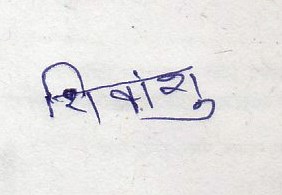 शिवांशु